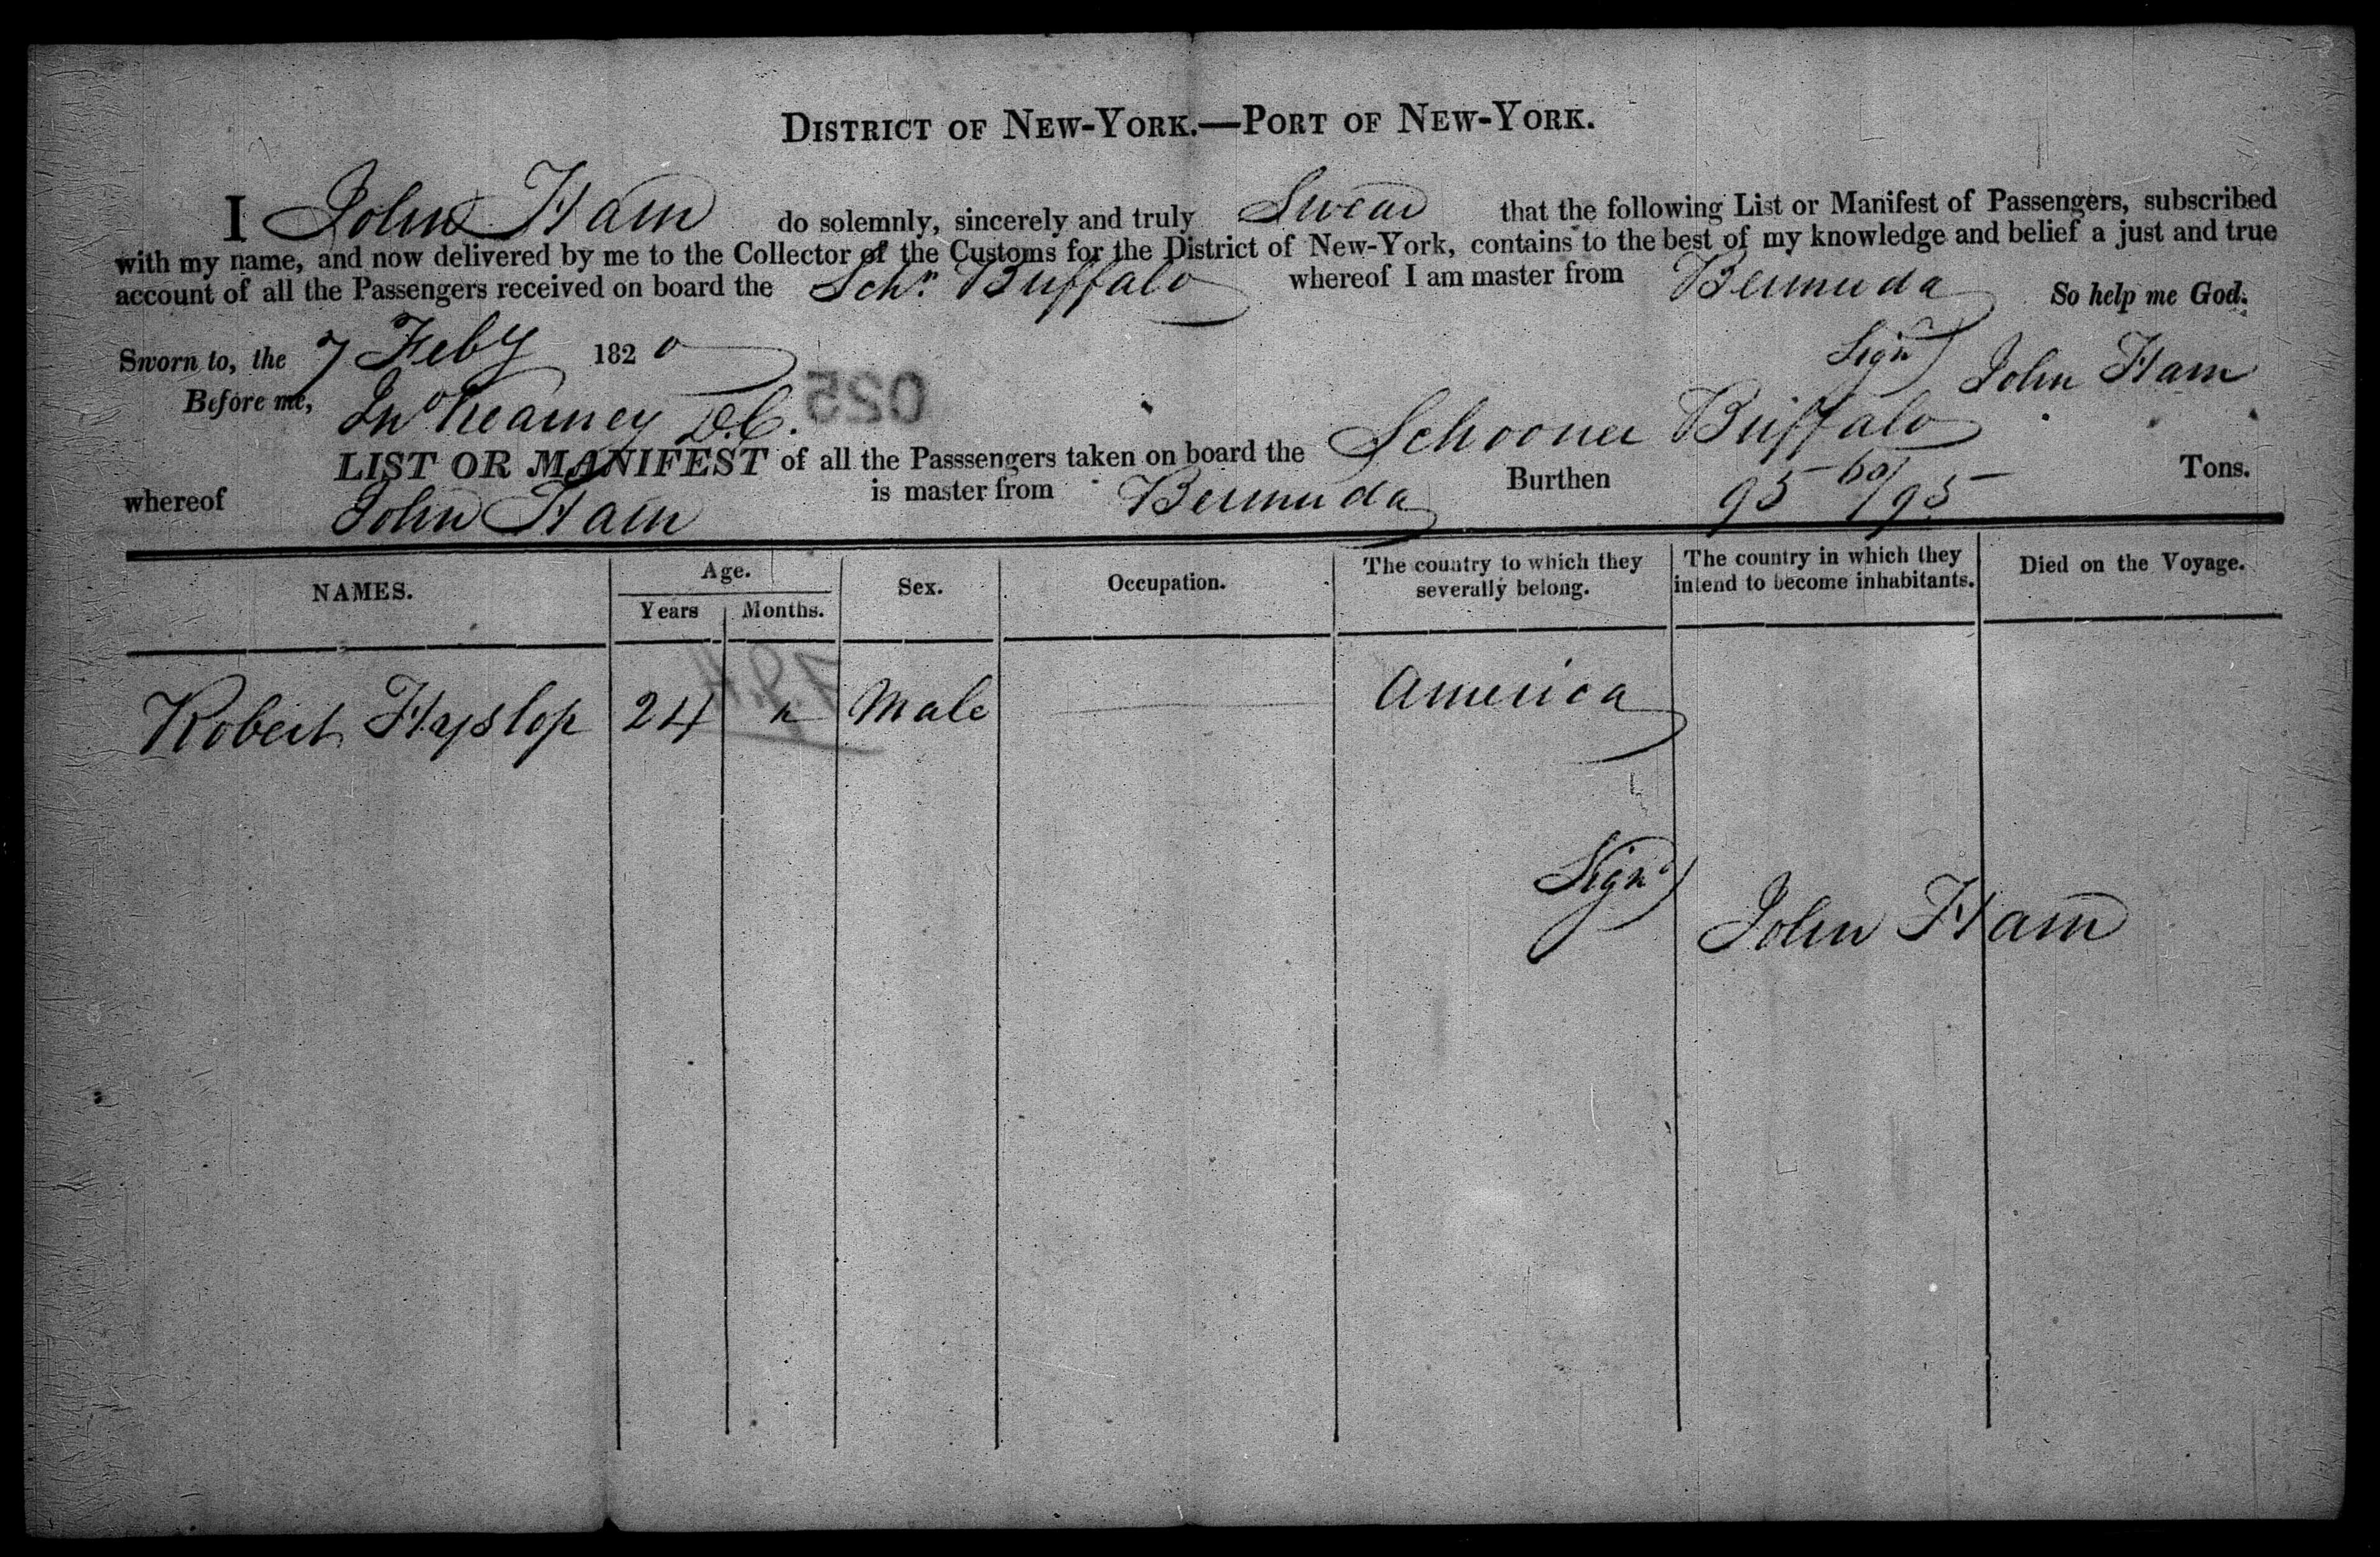 DISTRICT OF NEW-YORK.—PORT OF NEW-YORK.
I John Ham do solemnly, sincerely and truly Swear that the following List or Manifest of Passengers, subscribed
with my name, and now delivered by me to the Collector of the Customs for the District of New-York, contains to the best of my knowledge and belief a just and true
account of all the Passengers received on board the Schr. Buffalo whereof I am master from Bermuda So help me God.
Sworn to, the 7 Feby 1820
Signd John Ham
Before me, Jno Kearney D.C.
025
LIST OR MANIFEST of all the Passsengers taken on board the Schooner Buffalo
whereof John Ham is master from Bermuda Burthen 95 60/95 Tons.
NAMES. Age. Sex. Occupation. The country to which they severally belong. The country in which they intend to become inhabitants. Died on the Voyage.
Years Months.
Robert Hyslop 24 Male America
Signd John Ham